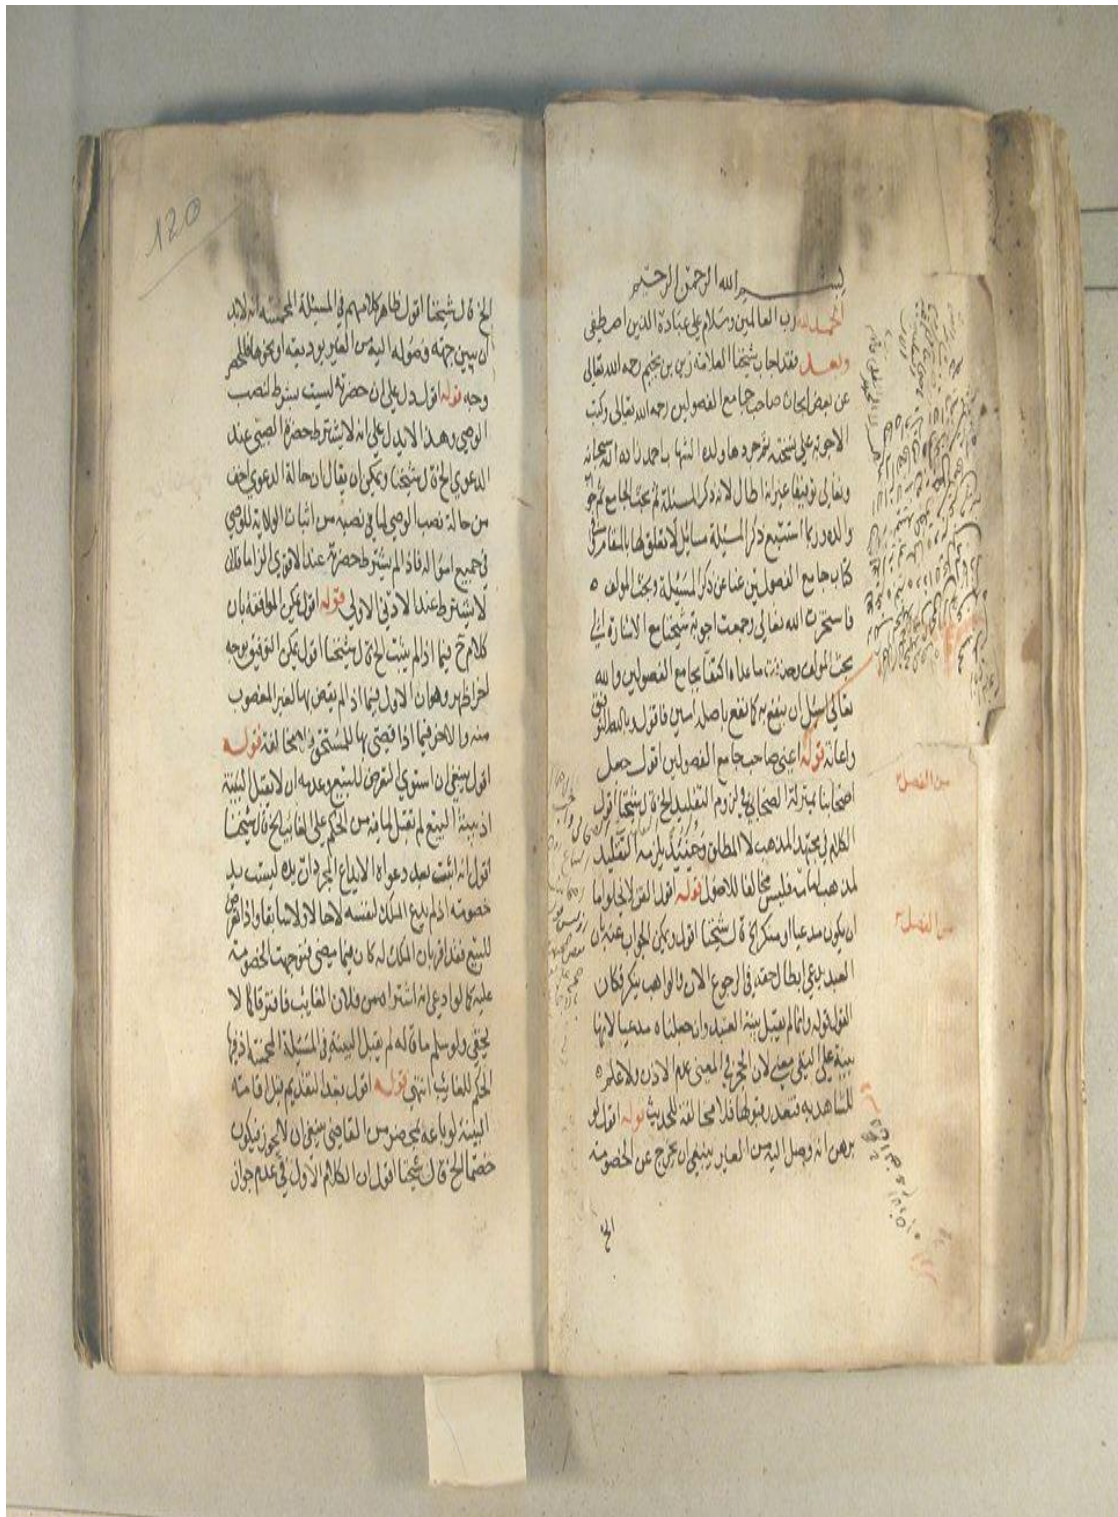 بسم الله الرحمن الرحيم
الحمد لله رب العالمين وسلام على عباده الذين اصطفى
وبعد فقد اجاب شيخنا العلامة زين بن نجيم رحمه الله تعالى
عن بعض ابحاث صاحب جامع الفصولين رحمه الله تعالى وكتب
الاجوبة على نسخته ثم جردها ولده الشهاب احمد زاده الله سبحانه
وتعالى توفيقا غير انه اطال لانه ذكر المسئلة ثم بحث الجامع ثم جواب
والده وربما استتبع ذكر المسئلة مسائل لا تعلق لها بالمقام
كتاب جامع الفصولين غنا عن ذكر المسئلة وبحث المولف
فاستخرت الله تعالى وجمعت اجوبة شيخنا مع الاشارة الى
بحث المولف وحذفت ما عداه اكتفا بجامع الفصولين والله
تعالى اسئل ان ينفع به كما نفع باصله امين فاقول وبالله التوفيق
واعانة قوله اعني صاحب جامع الفصولين اقول جعل
اصحابنا بمنزلة الصحابي في لزوم التقليد الخ قال شيخنا اقول
الكلام في مجتهد المذهب لا المطلق وحينئذ يلزمه التقليد
لمذهب امامه فليس مخالفا للاصول قوله اقول القن لا يخلوا اما
ان يكون مدعيا او منكر الخ قال شيخنا اقول ويمكن الجواب عنه بان
العبد يدعي ابطال حقه في الرجوع الان والواهب ينكر فكان
القول قوله وانما لم يقبل بينة العبد وان جعلناه مدعيا لانها
بينة على النفي معنى لان الحجر في المعنى عدم الاذن ولا علم
للشاهد به فتعذر قبولها فلا مخالفة للحديث قوله اقول لو
برهن انه وصل اليه من الغير ينبغي ان يخرج عن الخصومة
الخ
من الفصل
من الفصل
120
الخ قال شيخنا اقول ظاهر كلامهم في المسئلة المخمسة انه لابد
ان يبين جهة وصوله اليه من الغير بوديعة او نحوها
وجه قوله اقول دل على ان حضرته ليست بشرط لنصب
الوصي وهذا لا يدل على انه لا يشترط حضرة الصبي عند
الدعوى الخ قال شيخنا ويمكن ان يقال ان حالة الدعوى اخف
من حالة نصب الوصي لما في نصبه من اثبات الولاية للوصي
في جميع امواله فاذا لم يشترط حضرته عند الاقوى الزاما فلان
لا يشترط عند الادنى الاولى قوله اقول يمكن الموافقة بان
كلام خ فيما اذا لم يثبت الخ قال شيخنا اقول يمكن التوفيق بوجه
اخر اظهر وهو ان الاول فيما اذا لم يقض بها لغير المغصوب
منه والاخر فيما اذا قضي بها للمستحق فلا مخالفة قوله
اقول ينبغي ان استوي التعرض للبيع وعدمه ان لا يقبل البينة
اذ بينة البيع لم تقبل لما فيه من الحكم على الغايب الخ قال شيخنا
اقول انه اثبت بعد دعواه الايداع المجرد ان يده ليست يد
خصومة اذ لم يدع الملك لنفسه لا حالا ولا سابقا واذا تعرض
للبيع فقد اقر بان الملك له كان فيما مضى فتوجهت الخصومة
عليه كما لو ادعى انه اشتراه من فلان الغايب فافترقا كما لا
يخفى ولو سلم ما قاله لم يقبل البينة في المسئلة المخمسة اذ فيها
الحكم للغائب انتهى قوله اقول بعد التقديم قبل اقامته
البينة لو باعه بمحضر من القاضي ينبغي ان لا يجوز فيكون
خصما الخ قال شيخنا اقول ان الكلام الاول في عدم جواز